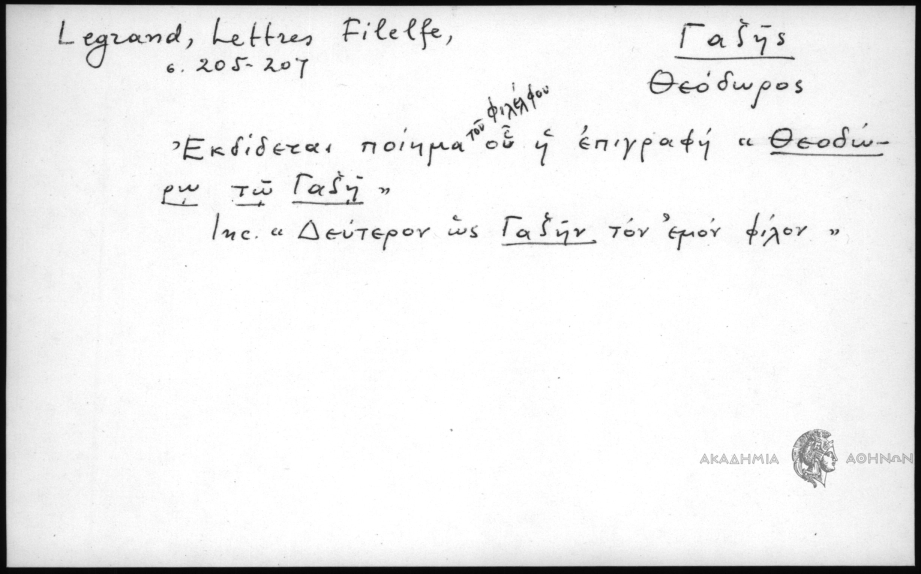 Legrand, Lettres Filelfe,
σ. 205-207
Γαζῆς
Θεόδωρος
Ἐκδίδεται ποίημα τοῦ Φιλέλφου οὗ ἡ ἐπιγραφή « Θεοδώ-
ρῳ τῷ Γαζῇ »
Inc. « Δεύτερον ὡς Γαζῆν τόν ἐμόν φίλον »
ΑΚΑΔΗΜΙΑ ΑΘΗΝΩΝ